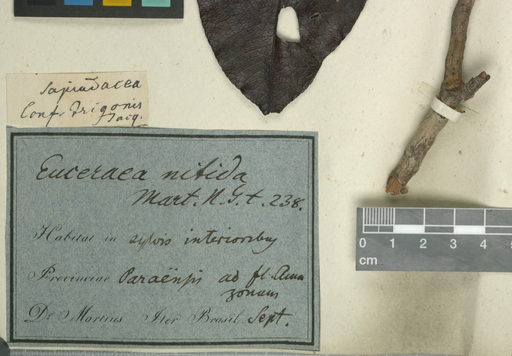 Sapindacea
Conf. Trigonis
Jacq.
Euceraea nitida
Mart. N. G. t. 238.
Habitat in sylvis interioribus
Provinciae Paraënsis ad fl. Ama
zonum
Dr. Martius Iter Brasil. Sept.
0 1 2 3 4 5
cm